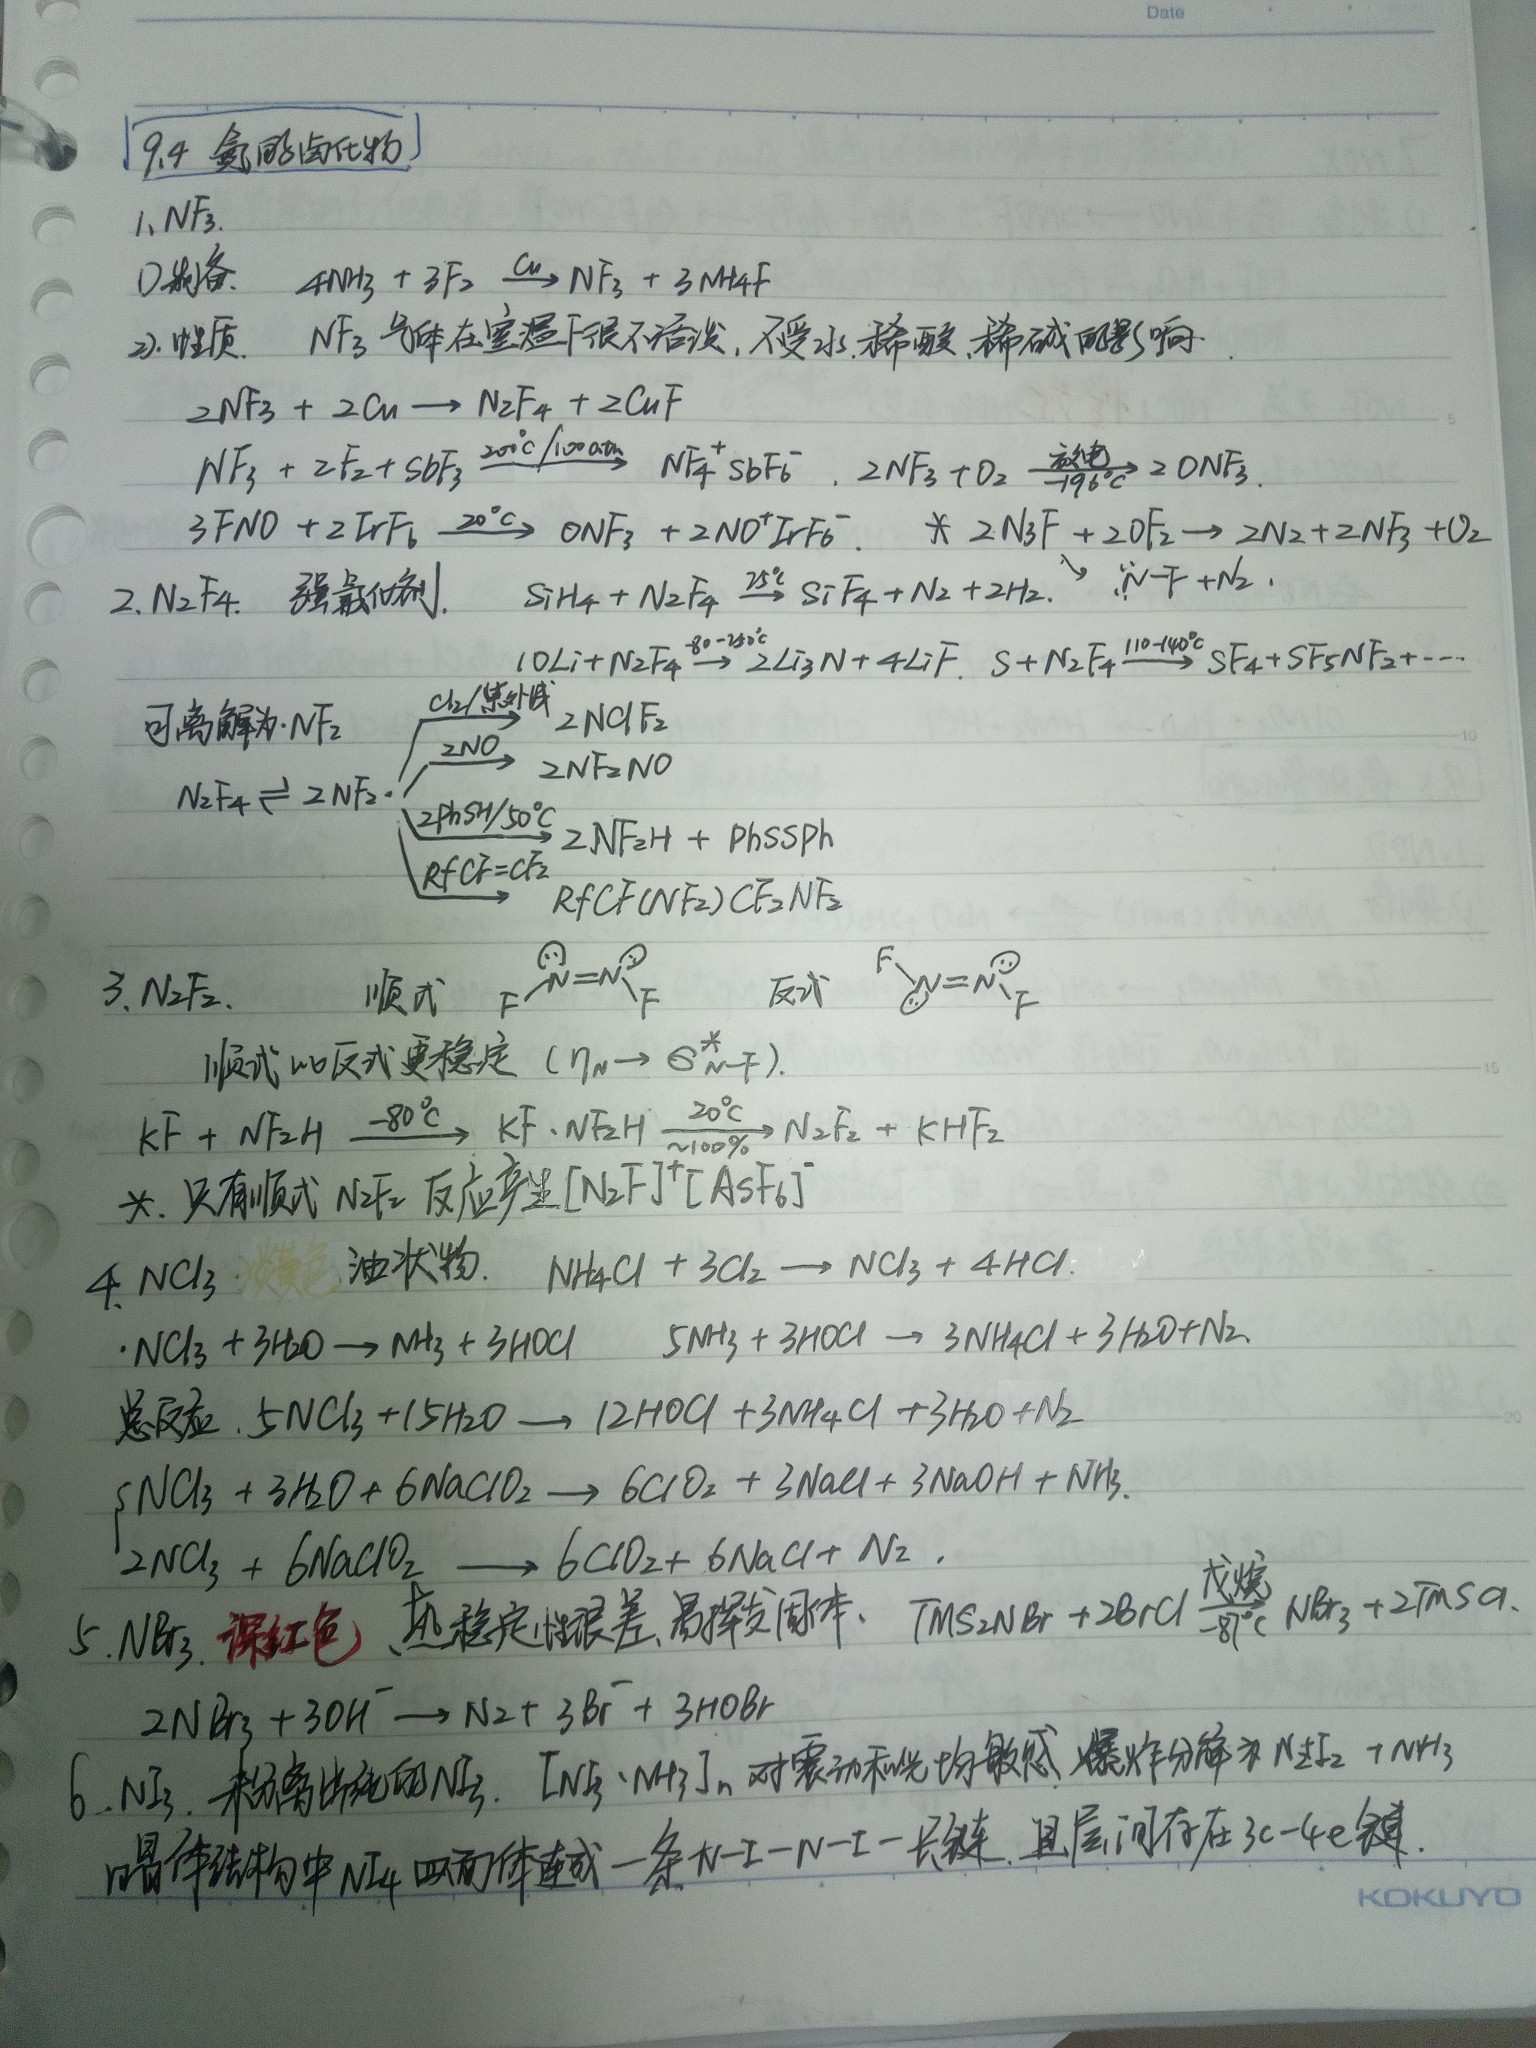 Date
9.4 氮的卤化物
1、NF3.
1)制备. 4NH3 + 3F2 —Cu→ NF3 + 3NH4F
2).性质. NF3气体在室温下很不活泼,不受水、稀酸、稀碱的影响.
2NF3 + 2Cu → N2F4 + 2CuF
NF3 + 2F2 + SbF3 —200℃/100atm→ NF4⁺SbF6⁻. 2NF3 + O2 —放电/-196℃→ 2ONF3.
3FNO + 2IrF6 —20℃→ ONF3 + 2NO⁺IrF6⁻. * 2N3F + 2OF2 → 2N2 + 2NF3 + O2
↘ :N̈-F + N2.
2. N2F4. 强氟化剂. SiH4 + N2F4 —25℃→ SiF4 + N2 + 2H2.
10Li + N2F4 —-80-250℃→ 2Li3N + 4LiF. S + N2F4 —110-140℃→ SF4 + SF5NF2 + ----
可离解为·NF2 Cl2/紫外线 2NClF2
2NO 2NF2NO
N2F4 ⇌ 2NF2·
2PhSH/50℃ 2NF2H + PhSSPh
RfCF=CF2 RfCF(NF2)CF2NF2
3. N2F2. 顺式 F N=N F 反式 F N=N F
顺式比反式更稳定 (nN → σ*N-F).
KF + NF2H —-80℃→ KF·NF2H —20℃/~100%→ N2F2 + KHF2
*. 只有顺式N2F2反应产生[N2F]⁺[AsF6]⁻
4. NCl3 淡黄色 油状物. NH4Cl + 3Cl2 → NCl3 + 4HCl.
·NCl3 + 3H2O → NH3 + 3HOCl 5NH3 + 3HOCl → 3NH4Cl + 3H2O + N2.
总反应. 5NCl3 + 15H2O → 12HOCl + 3NH4Cl + 3H2O + N2
NCl3 + 3H2O + 6NaClO2 → 6ClO2 + 3NaCl + 3NaOH + NH3.
2NCl3 + 6NaClO2 → 6ClO2 + 6NaCl + N2.
5. NBr3. 深红色、热稳定性很差、易挥发固体. TMS2NBr + 2BrCl —戊烷/-87℃→ NBr3 + 2TMSCl.
2NBr3 + 3OH⁻ → N2 + 3Br⁻ + 3HOBr
6. NI3. 未分离出纯的NI3. [NI3·NH3]n 对震动和光均敏感,爆炸分解为N2+I2+NH3
晶体结构中NI4四面体连成一条N-I-N-I-长链.且层间存在3c-4e键.
5
10
15
20
KOKUYO